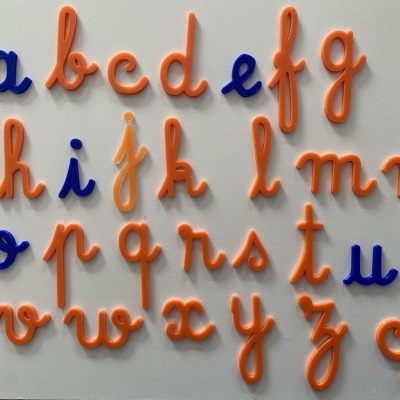 a b c d e f g
h i j k l m n
o p q r s t u
v w x y z c